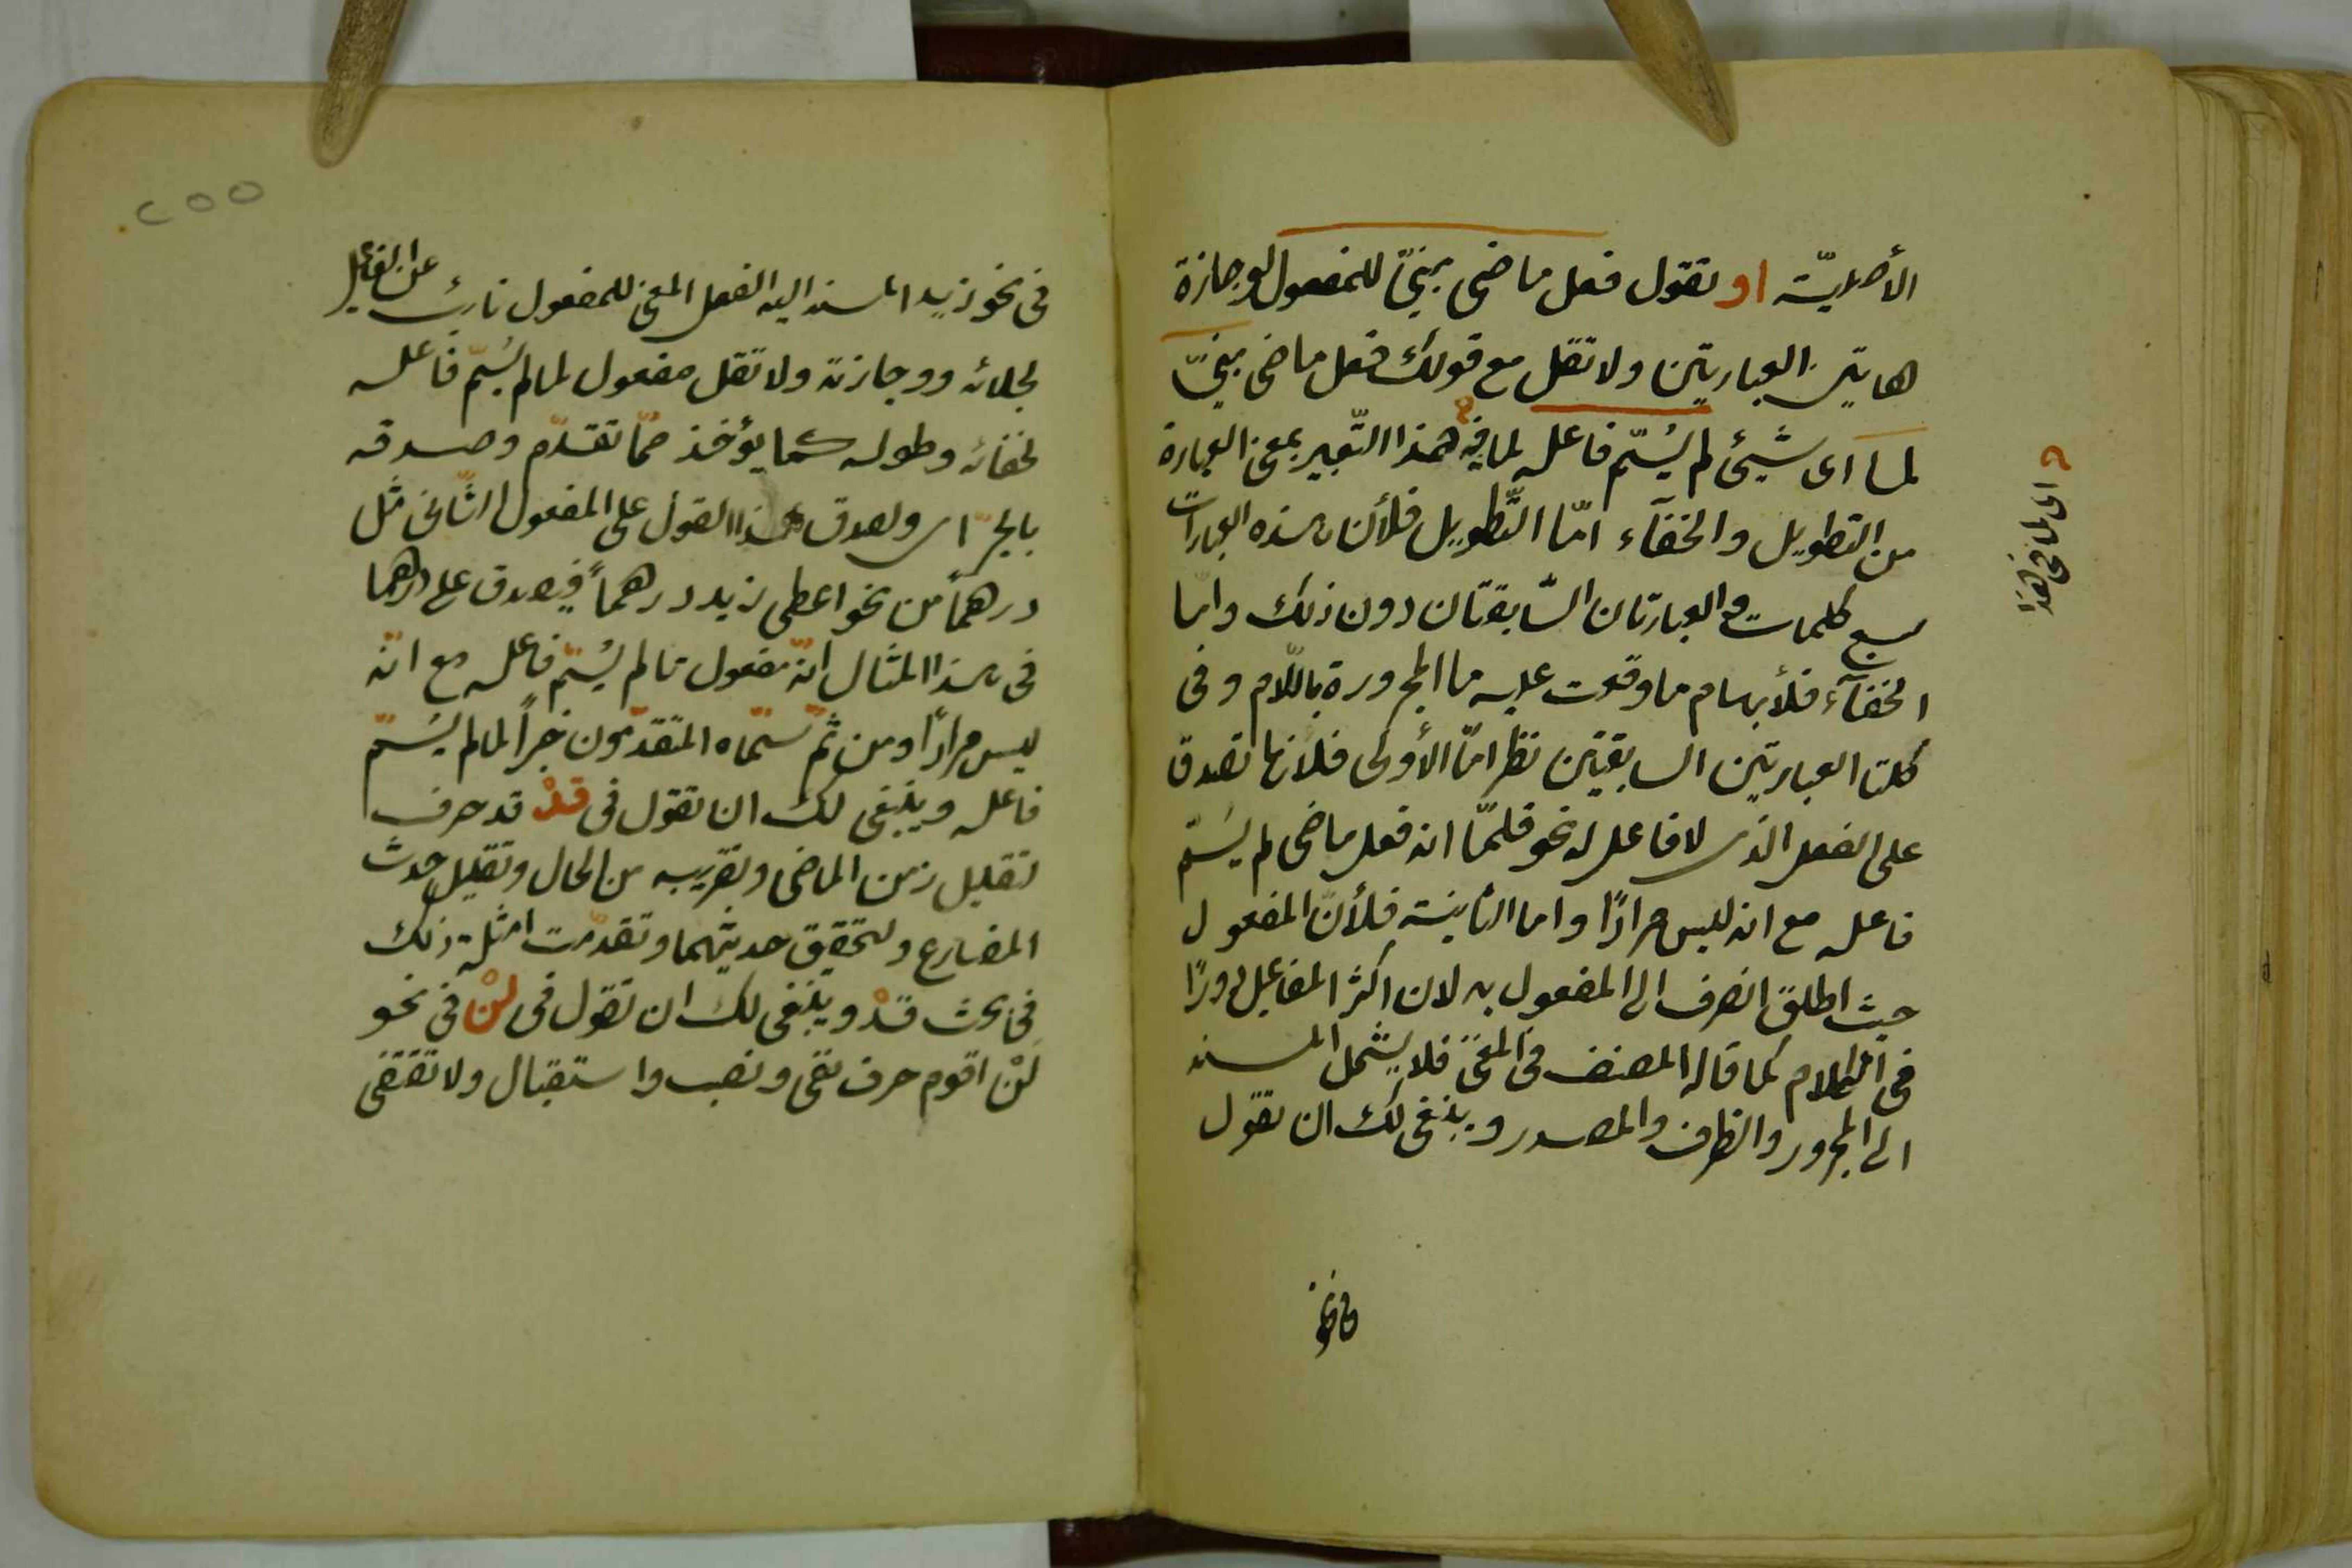 الأصليّة او تقول فعل ماضي مبنيّ للمفعول لوجازة
هاتين العبارتين ولا تقل مع قولك فعل ماضى مبنيّ
لما اى شيئ لم يُسَمّ فاعله لما فيه هذا التّعبير بمعنى العبارة
من التطويل والخفآء امّا التّطويل فلأن هذه العبارات
سبع كلمات والعبارتان السّابقتان دون ذلك وامّا
الخفآء فلأبهام ما وقعت عليه ما المجرورة باللّام وفى
كلتا العبارتين السابقتين نظر امّا الأولى فلانها تصدق
على الفعل الذى لا فاعل له نحو قلّما انه فعل ماضى لم يسَمّ
فاعله مع انه ليس مرادًا واما الثانية فلأنّ المفعول
حيث اطلق انصرف الى المفعول به لان اكثر المفاعيل دورًا
فى الكلام كما قاله المصنف فى المغنى فلا يشمل المسند
الى المجرور والظرف والمصدر وينبغى لك ان تقول
اى لما فى هذا
فى نحو زيد المسند اليه الفعل المبنى للمفعول نائب عن الفاعل
لجلائه ووجازته ولا تقل مفعول لما لم يُسَمّ فاعله
لخفائه وطوله كما يؤخذ ممّا تقدّم وصدقه
بالجرّ اى ولصدق هذا القول على المفعول الثّانى مثل
درهمًا من نحو اعطى زيد درهمًا فيصدق على درهما
فى هذا المثال انّه مفعول ما لم يُسَمّ فاعله مع انّه
ليس مرادًا ومن ثمّ سَمّاه المتقدّمون خبرًا لما لم يسَمّ
فاعله وينبغى لك ان تقول فى قدْ قد حرف
تقليل زمن الماضى وتقريبه من الحال وتقليل حدث
المضارع ولتحقيق حدثيهما وتقدّمت امثلة ذلك
فى بحث قدْ وينبغى لك ان تقول فى لنْ فى نحو
لنْ اقوم حرف نفى ونصب واستقبال ولا تقتضى
٢٥٥